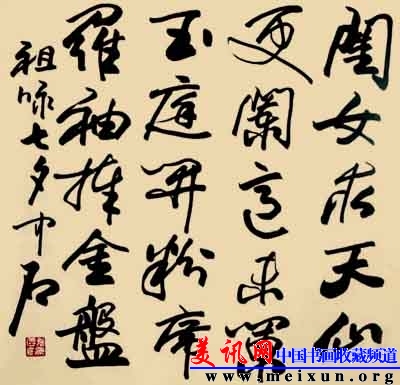 閨女求天
更闌意未闌
玉庭開粉席
羅袖捧金盤
祖詠七夕中石
美讯网 中国书画收藏频道
www.meixun.org